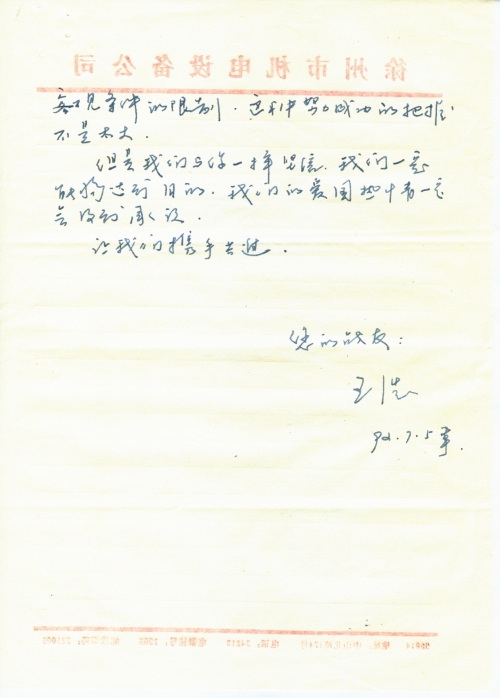 徐州市机电设备公司
客观条件的限制，这种努力成功的把握
不是太大．
但是我们与你一样坚信．我们一定
能够达到目的．我们的爱国热忱一定
会得到承认．
让我们携手共进．
您的战友：
92.7.5草．